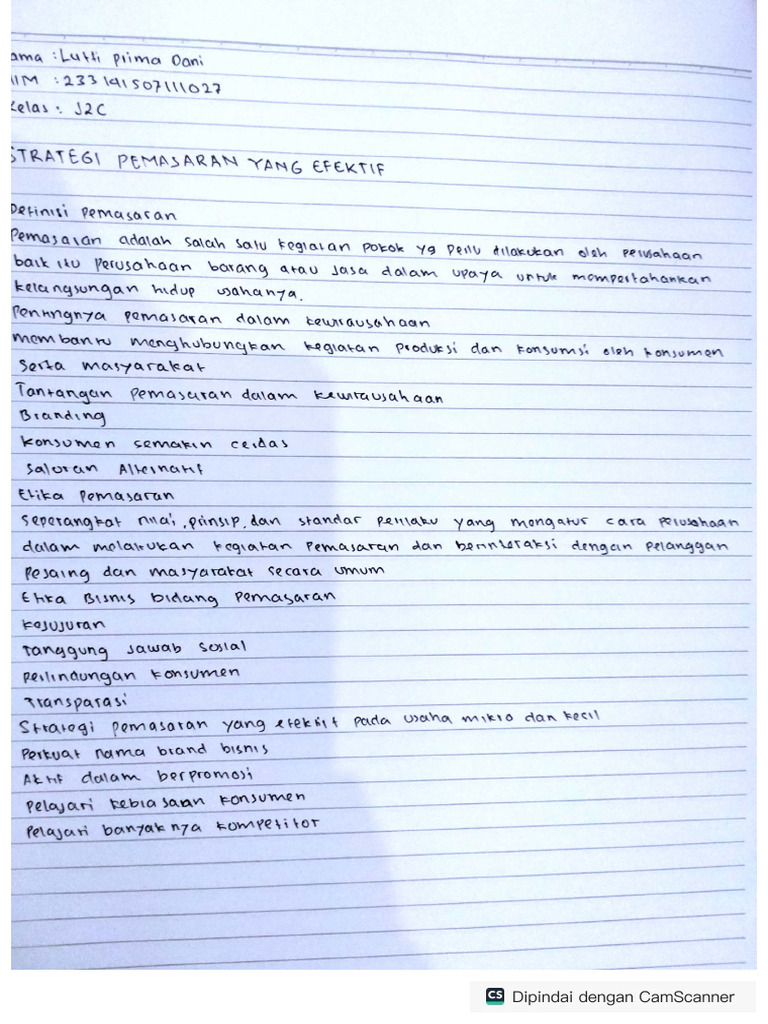 ama : Lutfi prima Dani
IM : 233141507111027
kelas : J2C
STRATEGI PEMASARAN YANG EFEKTIF
Definisi pemasaran
Pemasaran adalah salah satu kegiatan pokok yg perlu dilakukan oleh perusahaan
baik itu perusahaan barang atau jasa dalam upaya untuk mempertahankan
kelangsungan hidup usahanya.
Pentingnya pemasaran dalam kewirausahaan
membantu menghubungkan kegiatan produksi dan konsumsi oleh konsumen
serta masyarakat
Tantangan pemasaran dalam kewirausahaan
Branding
konsumen semakin cerdas
saluran Alternatif
Etika pemasaran
seperangkat nilai, prinsip, dan standar perilaku yang mengatur cara perusahaan
dalam melakukan kegiatan pemasaran dan berinteraksi dengan pelanggan
pesaing dan masyarakat secara umum
Etika Bisnis bidang pemasaran
kejujuran
Tanggung jawab sosial
perlindungan konsumen
Transparasi
Strategi pemasaran yang efektif pada usaha mikro dan kecil
perkuat nama brand bisnis
Aktif dalam berpromosi
pelajari kebiasaan konsumen
pelajari banyaknya kompetitor
CS Dipindai dengan CamScanner